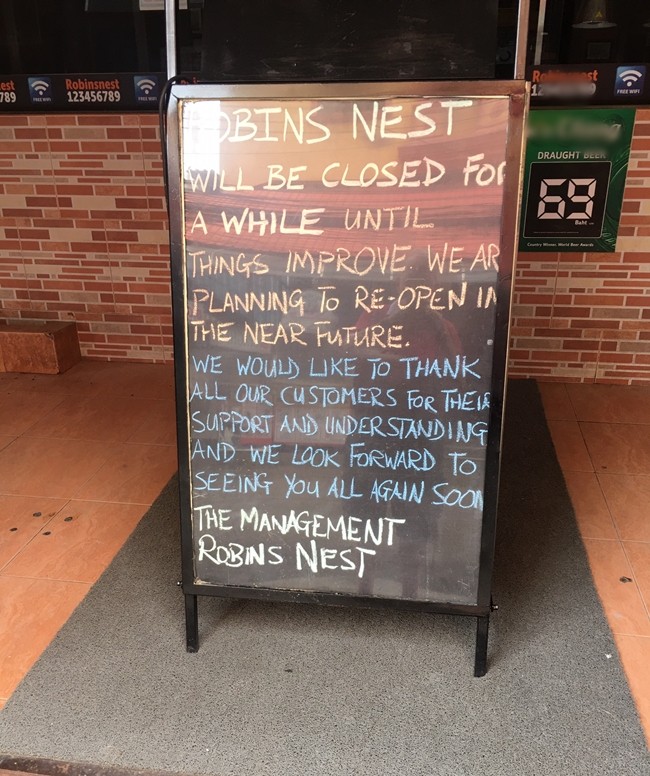 Robinsnest
789
FREE WIFI
123456789
FREE WIFI
FREE WIFI
DRAUGHT BEER
69
Baht
Country Winner, World Beer Awards
OBINS NEST
WILL BE CLOSED FOR
A WHILE UNTIL
THINGS IMPROVE. WE AR
PLANNING TO RE-OPEN IN
THE NEAR FUTURE.
WE WOULD LIKE TO THANK
ALL OUR CUSTOMERS FOR THEIR
SUPPORT AND UNDERSTANDING
AND WE LOOK FORWARD TO
SEEING YOU ALL AGAIN SOON
THE MANAGEMENT
ROBINS NEST